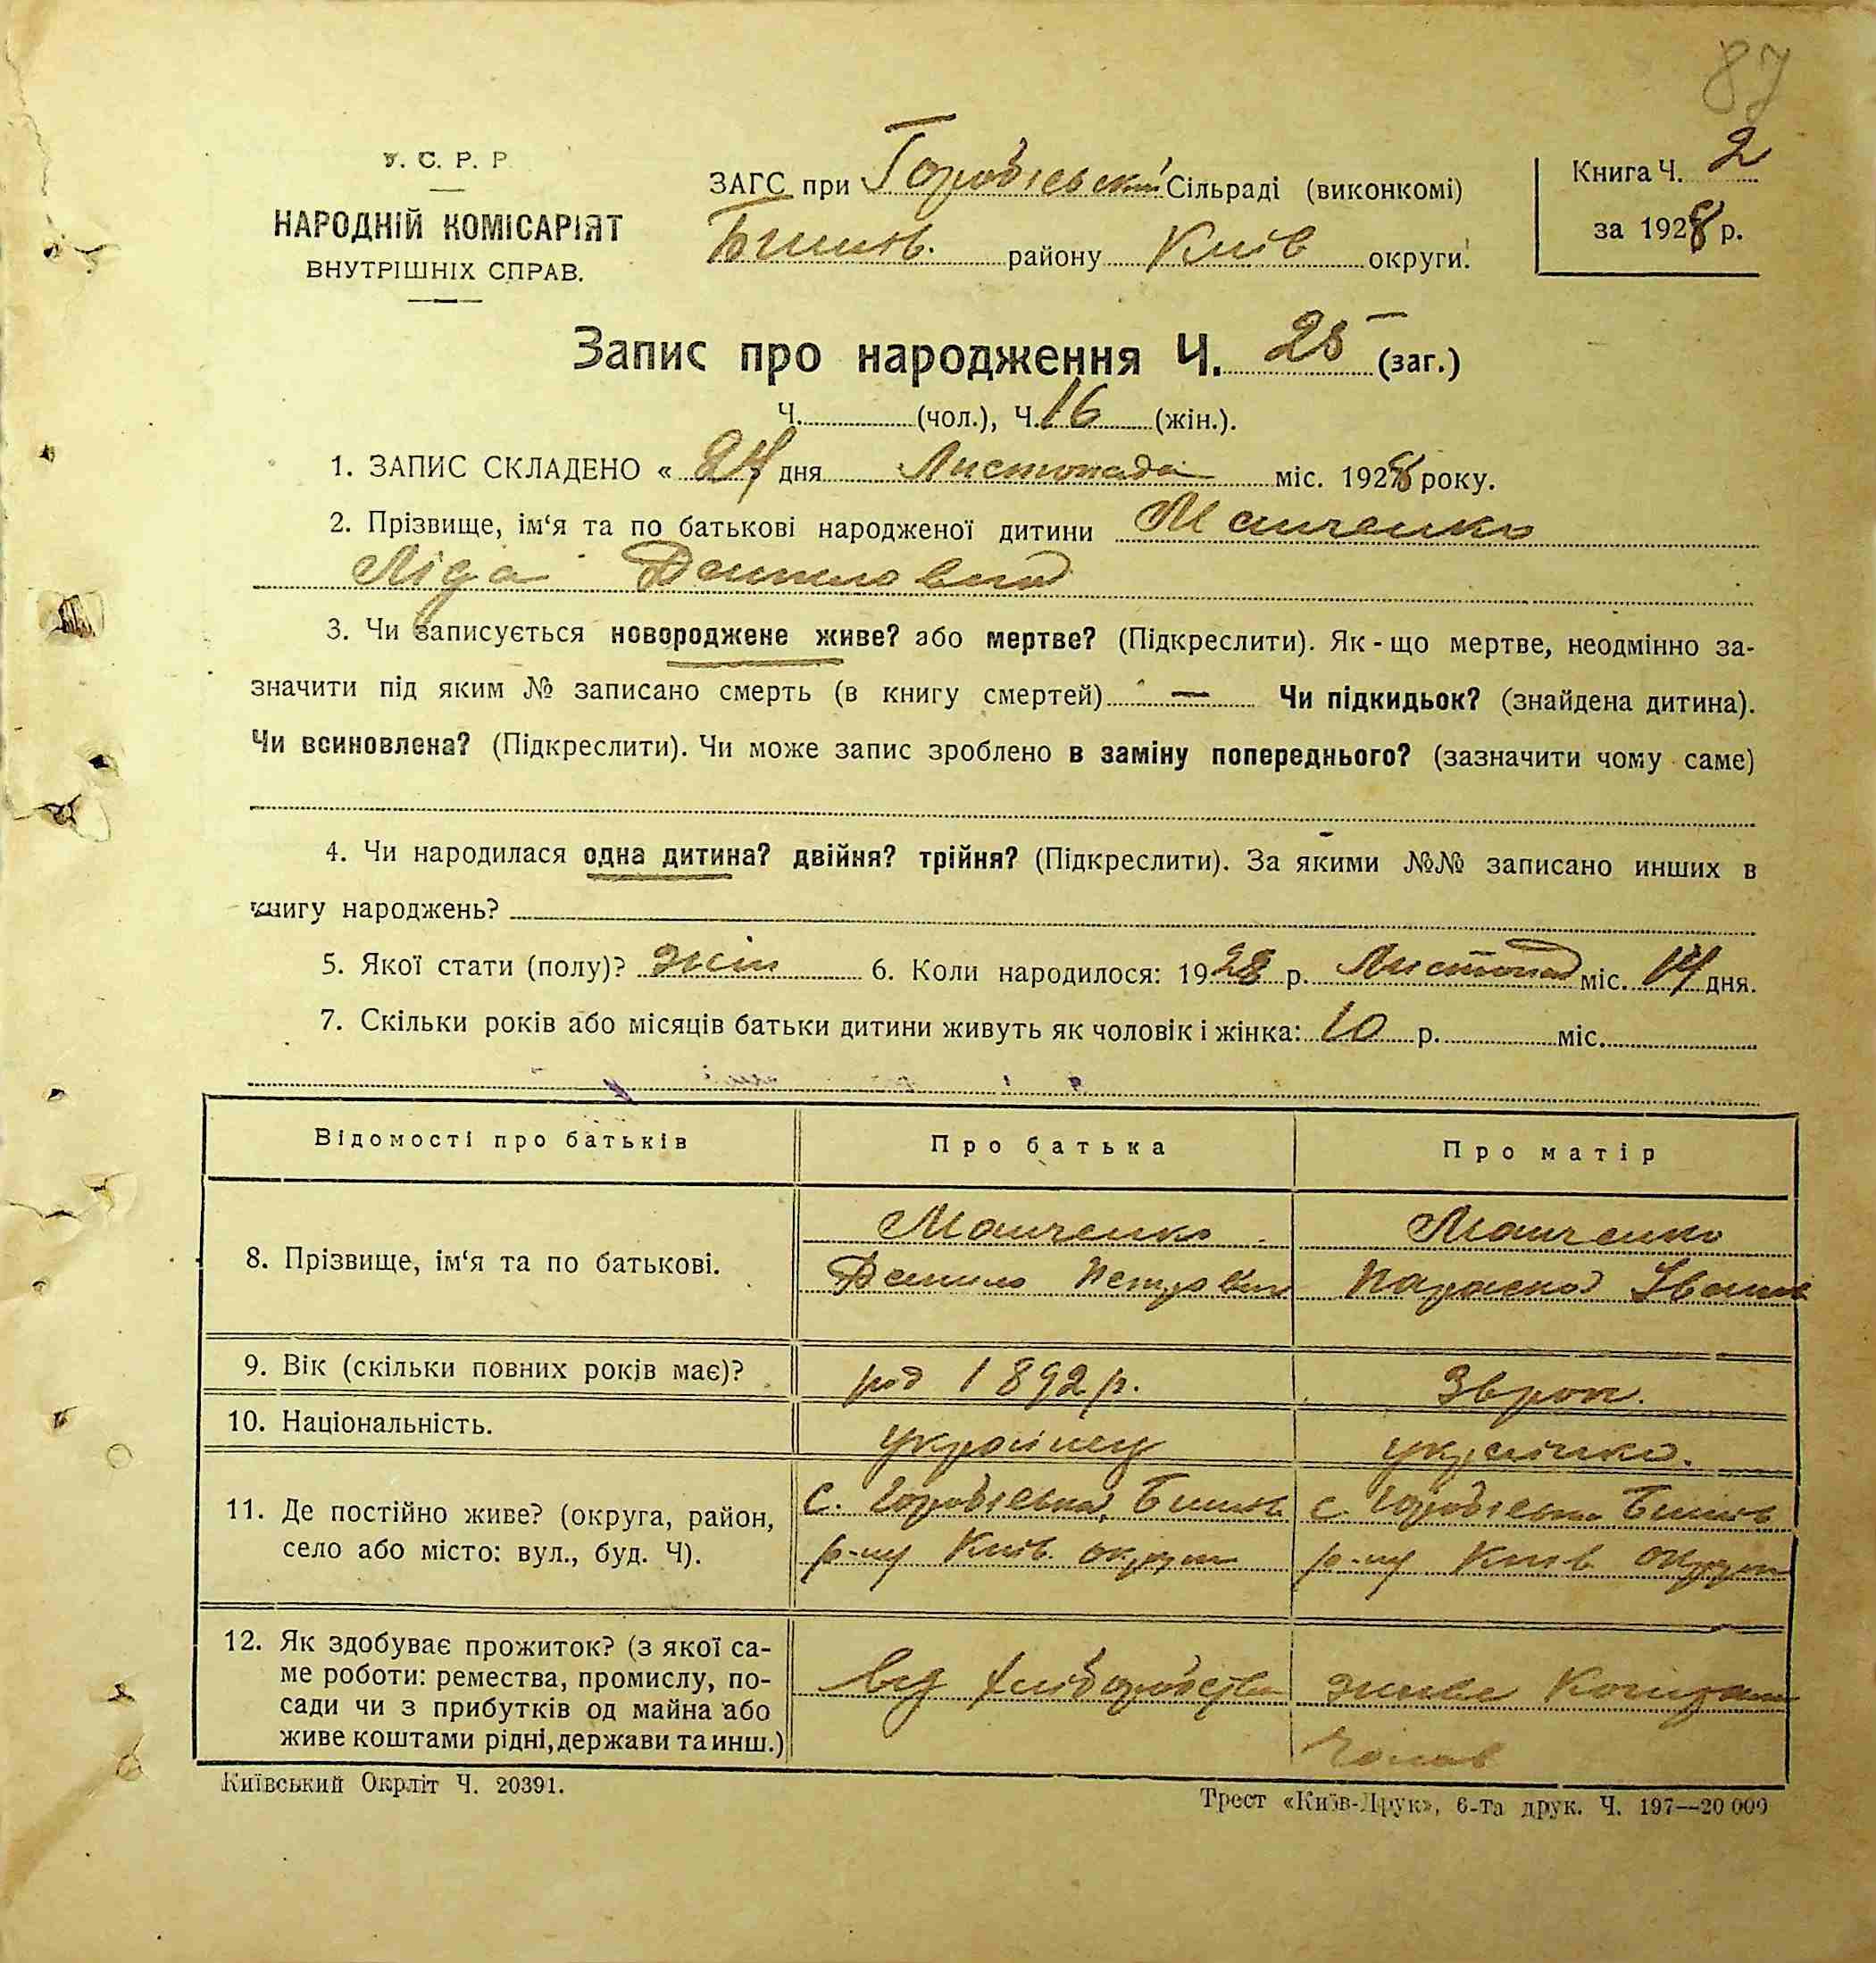 87
У. С. Р. Р
НАРОДНІЙ КОМІСАРІЯТ
ВНУТРІШНІХ СПРАВ.
ЗАГС при Горобіевській Сільраді (виконкомі)
Бишів. району Київ округи.
Книга Ч. 2
за 1928 р.
Запис про народження Ч. 25 (заг.)
Ч. (чол.), Ч. 16 (жін.).
1. ЗАПИС СКЛАДЕНО « 24 дня Листопада міс. 1928 року.
2. Прізвище, ім‘я та по батькові народженої дитини Манченко
Ліда Даниловна
3. Чи записується новороджене живе? або мертве? (Підкреслити). Як - що мертве, неодмінно за-
значити під яким № записано смерть (в книгу смертей) — Чи підкидьок? (знайдена дитина).
Чи всиновлена? (Підкреслити). Чи може запис зроблено в заміну попереднього? (зазначити чому саме)
4. Чи народилася одна дитина? двійня? трійня? (Підкреслити). За якими №№ записано инших в
книгу народжень?
5. Якої стати (полу)? жін 6. Коли народилося: 1928 р. Листопад міс. 14 дня.
7. Скільки років або місяців батьки дитини живуть як чоловік і жінка: 10 р. міс.
Відомості про батьків
Про батька
Про матір
8. Прізвище, ім‘я та по батькові.
Манченко
Данило Петрович
Манченко
Параска Іванів
9. Вік (скільки повних років має)?
род 1892 р.
10. Національність.
українец
українка.
11. Де постійно живе? (округа, район,
село або місто: вул., буд. Ч).
с. Горобіевка, Бишів
р-ну Київ. округи
с. Горобіевка Бишів
р-ну Київ округи
12. Як здобуває прожиток? (з якої са-
ме роботи: ремества, промислу, по-
сади чи з прибутків од майна або
живе коштами рідні, держави та инш.)
від хліборобства
живе коштами
чолов
Київський Окрліт Ч. 20391.
Трест «Київ-Друк», 6-та друк. Ч. 197—20 000